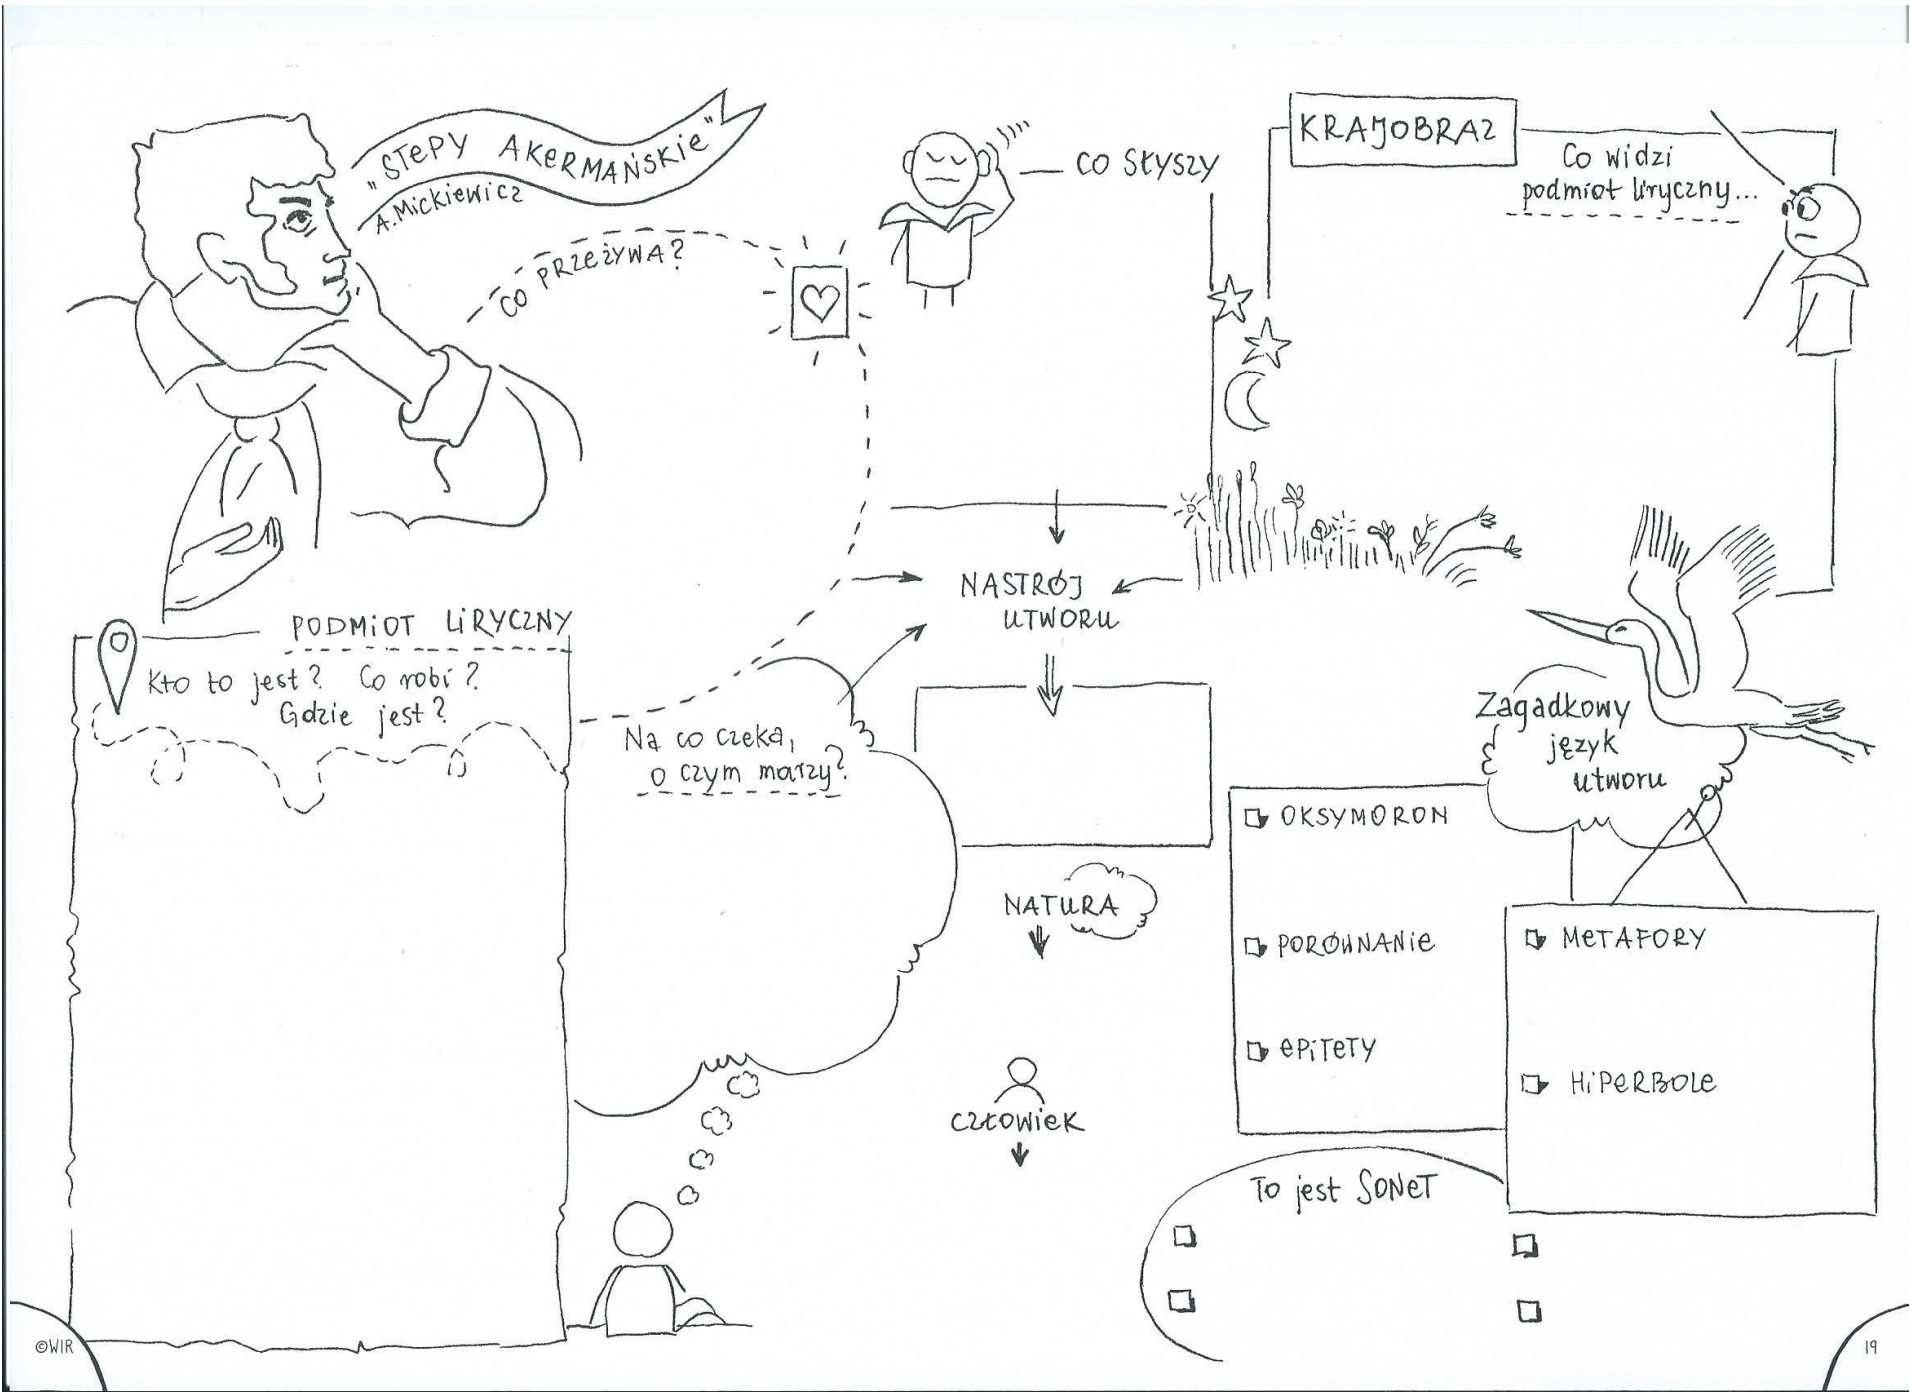 „STEPY AKERMAŃSKIE”
A. Mickiewicz
CO PRZEŻYWA?
CO SŁYSZY
KRAJOBRAZ
Co widzi
podmiot liryczny...
NASTRÓJ
UTWORU
PODMIOT LIRYCZNY
Kto to jest? Co robi?
Gdzie jest?
Na co czeka,
o czym marzy?
Zagadkowy
język
utworu
OKSYMORON
PORÓWNANIE
EPITETY
METAFORY
HIPERBOLE
NATURA
CZŁOWIEK
To jest SONET
©WIR
19